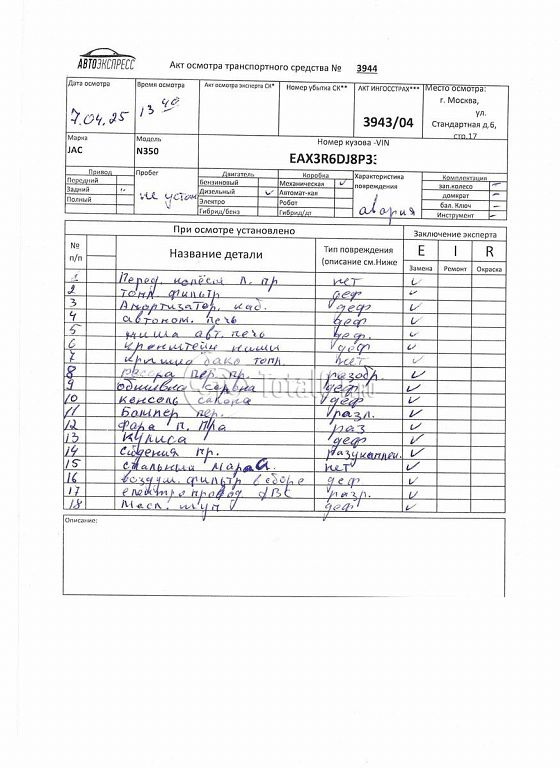 АВТОЭКСПРЕСС
Акт осмотра транспортного средства № 3944
Дата осмотра
7.04.25
Время осмотра
13 40
Акт осмотра эксперта СК*
Номер убытка СК**
АКТ ИНГОССТРАХ***
3943/04
Место осмотра:
г. Москва,
ул.
Стандартная д.6,
стр.17
Марка
JAC
Модель
N350
Номер кузова -VIN
EAX3R6DJ8P3
Привод
Передний
Задний "
Полный
Пробег
не устан
Двигатель
Бензиновый
Дизельный ✓
Электро
Гибрид/бенз
Коробка
Механическая ✓
Автомат-кая
Робот
Гибрид/дт
Характеристика
повреждения
авария
Комплектация
зап.колесо –
домкрат
бал. Ключ –
Инструмент –
При осмотре установлено
Заключение эксперта
№
п/п
Название детали
Тип повреждения
(описание см.Ниже
E I R
Замена Ремонт Окраска
1 Перед. колёса Л. пр нет ✓
2 топл. фильтр деф ✓
3 Амортизатор. каб. деф ✓
4 автоном. печь деф ✓
5 ниша авт. печь деф. ✓
6 кренштейн ниши деф ✓
7 Крышка бака топл. нет ✓
8 рессра пер. пр. разобр. ✓
9 обшивка салона деф. ✓
10 консоль салона деф ✓
11 Бампер пер. разл. ✓
12 Фара п. пра раз ✓
13 Кулиса деф ✓
14 Сидения пр. разукомплек. ✓
15 спальный нет ✓
16 воздуш. фильтр в сборе деф ✓
17 електропровод ДВС разр. ✓
18 Масл. щуп деф ✓
Total
Описание: